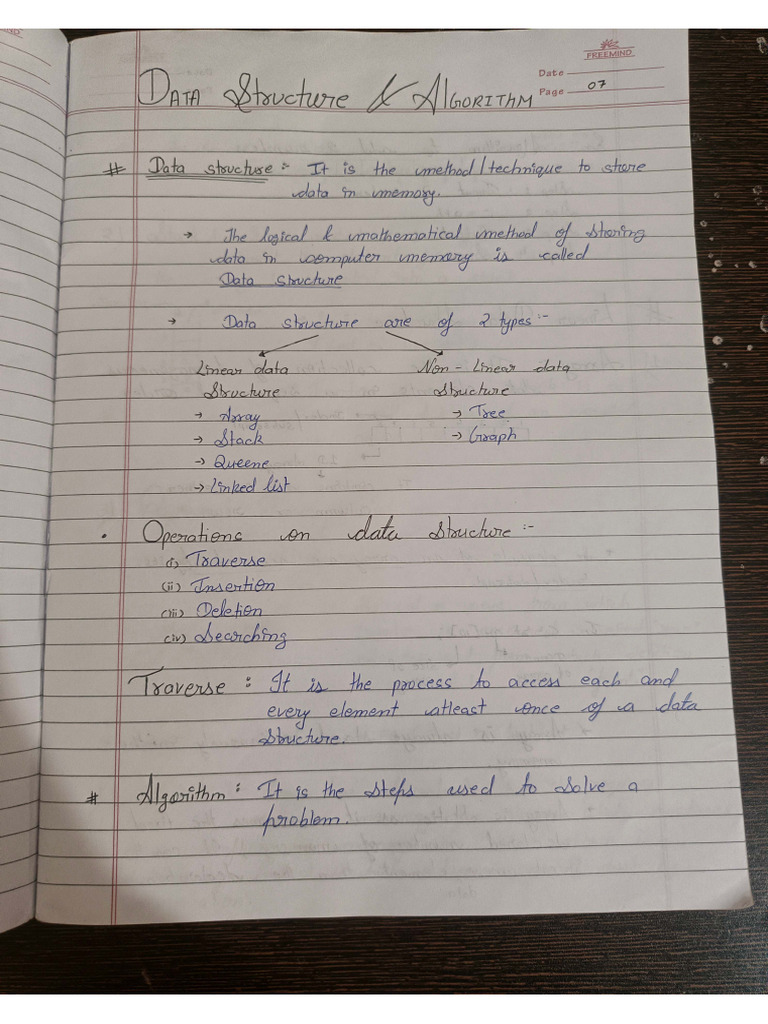 FREEMIND
Date
Page 07
DATA Structure & ALGORITHM
# Data structure :- It is the method/technique to store
data in memory.
→ The logical & mathematical method of storing
data in computer memory is called
Data structure
→ Data structure are of 2 types :-
Linear data Non - Linear data
Structure Structure
→ Array → Tree
→ Stack → Graph
→ Queene
→ Linked list
• Operations on data structure :-
(i) Traverse
(ii) Insertion
(iii) Deletion
(iv) Searching
Traverse : It is the process to access each and
every element atleast once of a data
structure.
# Algorithm : It is the steps used to solve a
problem.